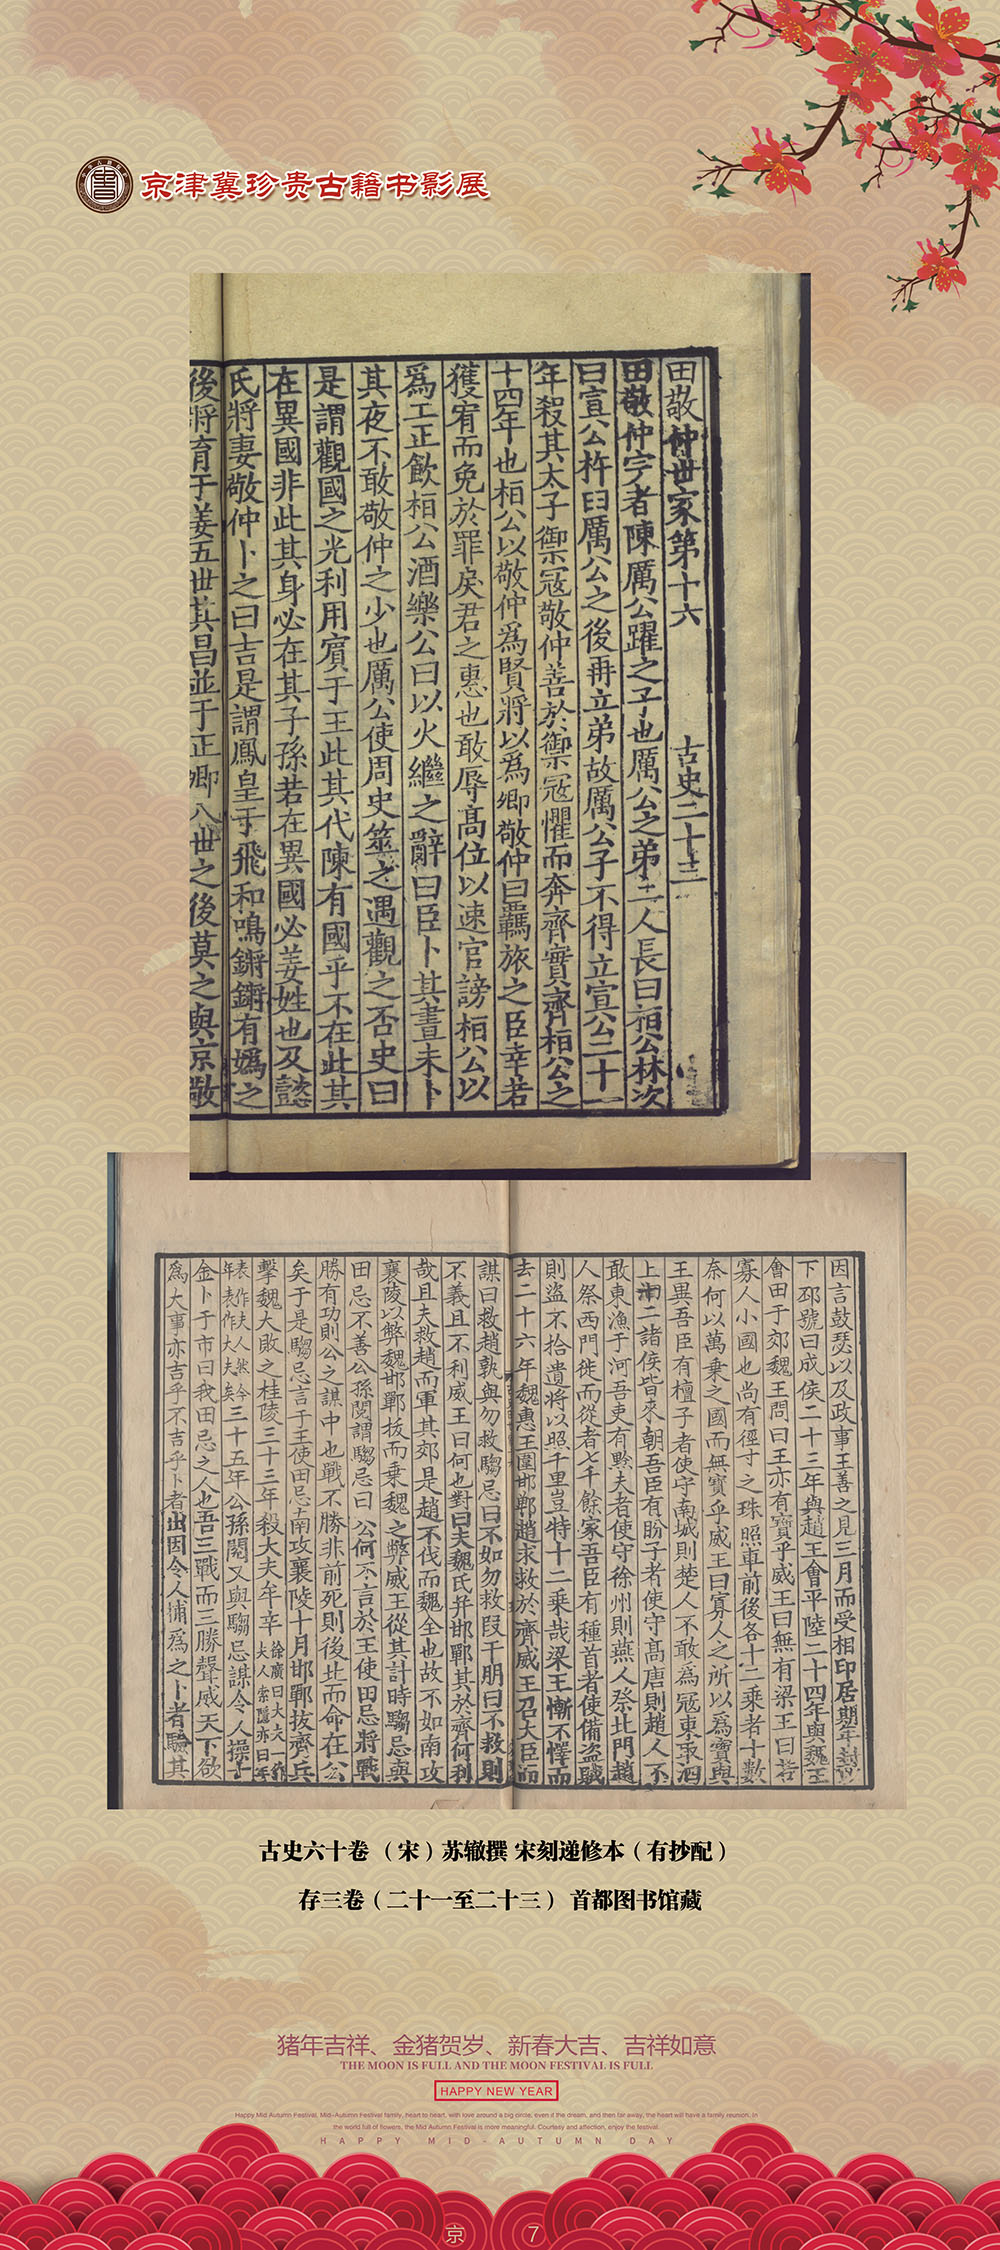 京津冀珍贵古籍书影展
田敬仲世家第十六 古史二十三
田敬仲完者陳厲公躍之子也厲公之弟二人長曰桓公林次
曰宣公杵臼厲公之後再立弟故厲公子不得立宣公二十一
年殺其太子御寇敬仲善於御寇懼而奔齊實齊桓公之
十四年也桓公以敬仲為賢將以為卿敬仲曰羈旅之臣幸若
獲宥而免於罪戾君之惠也敢辱高位以速官謗桓公以
為工正飲桓公酒樂公曰以火繼之辭曰臣卜其晝未卜
其夜不敢敬仲之少也厲公使周史筮之遇觀之否史曰
是謂觀國之光利用賓于王此其代陳有國乎不在此其
在異國非此其身必在其子孫若在異國必姜姓也及懿
氏將妻敬仲卜之曰吉是謂鳳皇于飛和鳴鏘鏘有媯之
後將育于姜五世其昌並于正卿八世之後莫之與京敬
因言鼓瑟以及政事王善之見三月而受相印居期年封
下邳號曰成侯二十三年與趙王會平陸二十四年與魏王
會田于郊魏王問曰王亦有寶乎威王曰無有梁王曰若
寡人小國也尚有徑寸之珠照車前後各十二乘者十數
奈何以萬乘之國而無寶乎威王曰寡人之所以為寶與
王異吾臣有檀子者使守南城則楚人不敢為寇東取泗
上十二諸侯皆來朝吾臣有盼子者使守高唐則趙人不
敢東漁于河吾吏有黔夫者使守徐州則燕人祭北門趙
人祭西門徙而從者七千餘家吾臣有種首者使備盜賊
則盜不拾遺將以照千里豈特十二乘哉梁王慚不懌而
去二十六年魏惠王圍邯鄲趙求救於齊威王召大臣而
謀曰救趙孰與勿救騶忌曰不如勿救段干朋曰不救則
不義且不利威王曰何也對曰夫魏氏并邯鄲其於齊何利
哉且夫救趙而軍其郊是趙不伐而魏全也故不如南攻
襄陵以弊魏邯鄲拔而乘魏之弊威王從其計時騶忌與
田忌不善公孫閱謂騶忌曰公何不言於王使田忌將戰
勝有功則公之謀中也戰不勝非前死則後北而命在公
矣于是騶忌言于王使田忌南攻襄陵十月邯鄲拔齊兵
擊魏大敗之桂陵三十三年殺大夫牟辛徐廣曰大夫一作夫人索隱亦曰年
表作夫人然今年表作大夫矣三十五年公孫閱又與騶忌謀令人操十
金卜于市曰我田忌之人也吾三戰而三勝聲威天下欲
為大事亦吉乎不吉乎卜者出因令人捕為之卜者驗其
古史六十卷 （宋）苏辙撰 宋刻递修本（有抄配）
存三卷（二十一至二十三） 首都图书馆藏
猪年吉祥、金猪贺岁、新春大吉、吉祥如意
THE MOON IS FULL AND THE MOON FESTIVAL IS FULL
HAPPY NEW YEAR
Happy Mid Autumn Festival, Mid-Autumn Festival family, heart to heart, with love around a big circle, even if the dream, and then far away, the heart will have a family reunion. In
the world full of flowers, the Mid Autumn Festival is more meaningful. Courtesy and affection, enjoy the festival.
HAPPY MID-AUTUMN DAY
京 7